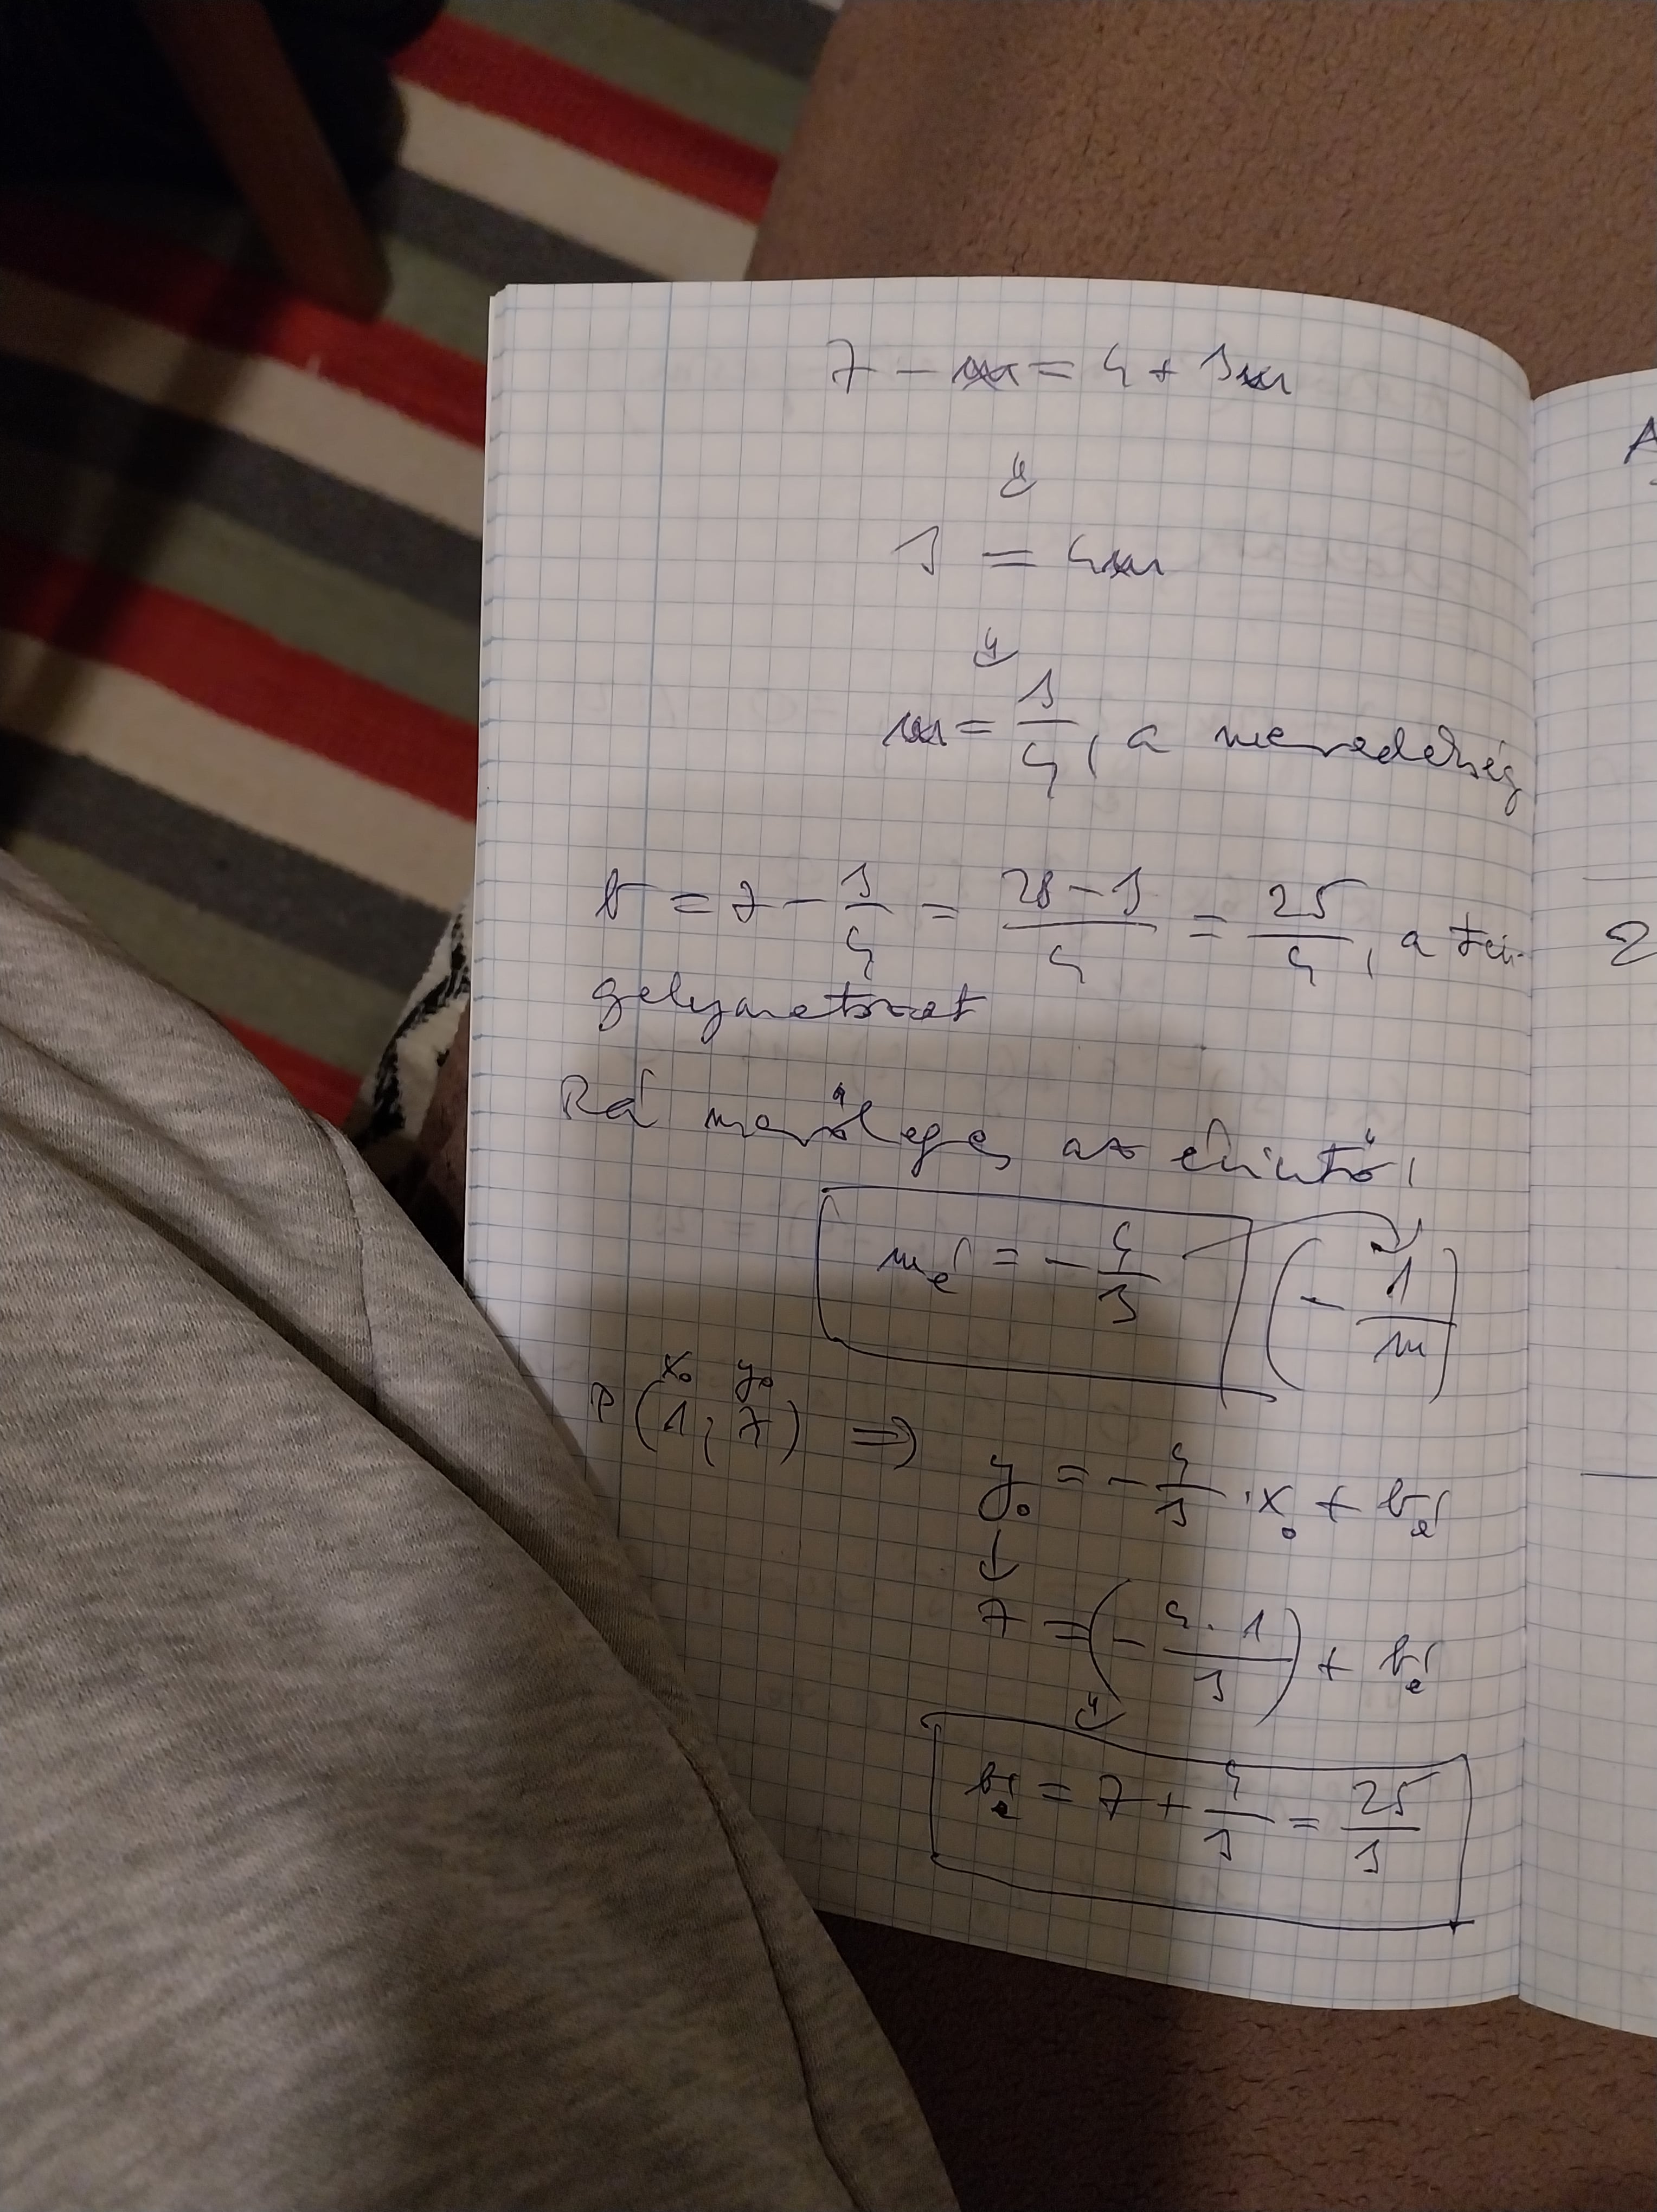 7 - m = 4 + 3m
⇓
3 = 4m
⇓
m = 3/4, a meredekség
b = 7 - 3/4 = (28 - 3)/4 = 25/4, a ten-
gelymetszet
Rá merőleges az érintő,
mé = - 4/3 (- 1/m)
x₀ y₀
P (1; 7) ⇒ y₀ = - 4/3 · x₀ + bé
↓
7 = (- 4·1/3) + bé
⇓
bé = 7 + 4/3 = 25/3
A
2